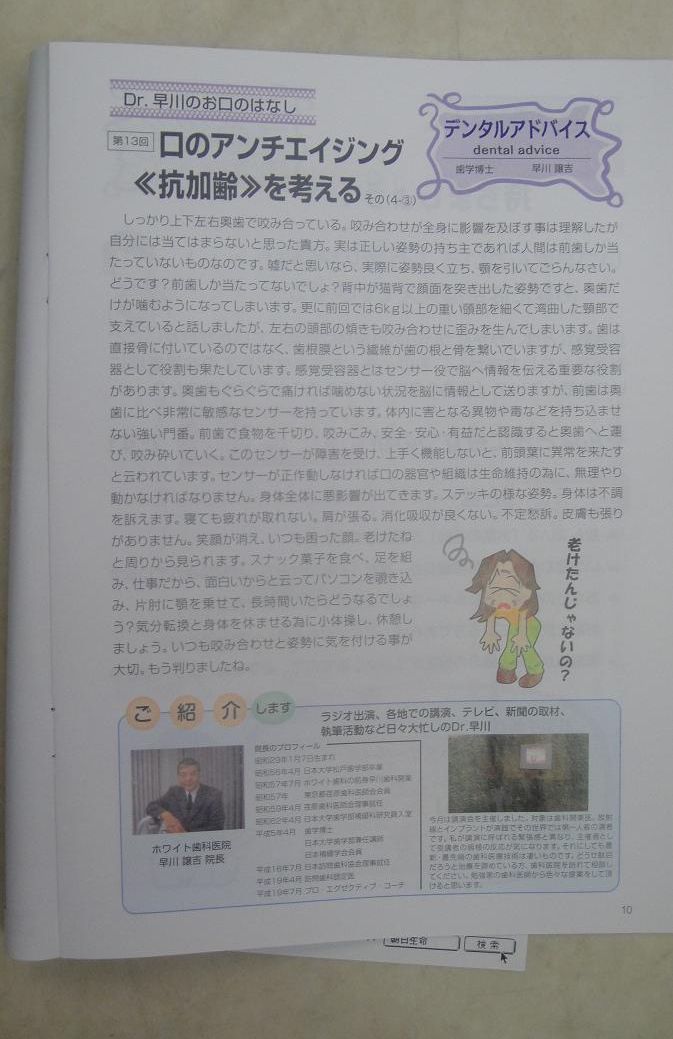 Dr.早川のお口のはなし
デンタルアドバイス
dental advice
歯学博士 早川 譲吉
第13回 口のアンチエイジング
≪抗加齢≫を考える その(4-③)
しっかり上下左右奥歯で咬み合っている。咬み合わせが全身に影響を及ぼす事は理解したが
自分には当てはまらないと思った貴方。実は正しい姿勢の持ち主であれば人間は前歯しか当
たっていないものなのです。嘘だと思いなら、実際に姿勢良く立ち、顎を引いてごらんなさい。
どうです？前歯しか当たってないでしょ？背中が猫背で顔面を突き出した姿勢ですと、奥歯だ
けが噛むようになってしまいます。更に前回では6kg以上の重い頭部を細くて湾曲した頸部で
支えていると話しましたが、左右の頭部の傾きも咬み合わせに歪みを生んでしまいます。歯は
直接骨に付いているのではなく、歯根膜という繊維が歯の根と骨を繋いでいますが、感覚受容
器として役割も果たしています。感覚受容器とはセンサー役で脳へ情報を伝える重要な役割
があります。奥歯もぐらぐらで痛ければ噛めない状況を脳に情報として送りますが、前歯は奥
歯に比べ非常に敏感なセンサーを持っています。体内に害となる異物や毒などを持ち込ませ
ない強い門番。前歯で食物を千切り、咬みこみ、安全・安心・有益だと認識すると奥歯へと運
び、咬み砕いていく。このセンサーが障害を受け、上手く機能しないと、前頭葉に異常を来たす
と云われています。センサーが正作動しなければ口の器官や組織は生命維持の為に、無理やり
動かなければなりません。身体全体に悪影響が出てきます。ステッキの様な姿勢。身体は不調
を訴えます。寝ても疲れが取れない。肩が張る。消化吸収が良くない。不定愁訴。皮膚も張り
がありません。笑顔が消え、いつも困った顔。老けたね
と周りから見られます。スナック菓子を食べ、足を組
み、仕事だから、面白いからと云ってパソコンを覗き込
み、片肘に顎を乗せて、長時間いたらどうなるでしょ
う？気分転換と身体を休ませる為に小体操し、休憩し
ましょう。いつも咬み合わせと姿勢に気を付ける事が
大切。もう判りましたね。
老けたんじゃないの？
ご紹介します
ラジオ出演、各地での講演、テレビ、新聞の取材、
執筆活動など日々大忙しのDr.早川
ホワイト歯科医院
早川 譲吉 院長
院長のプロフィール
昭和29年1月7日生まれ
昭和56年4月 日本大学松戸歯学部卒業
昭和57年7月 ホワイト歯科の前身早川歯科開業
昭和57年 東京都荏原歯科医師会会員
昭和59年4月 荏原歯科医師会理事就任
昭和62年4月 日本大学歯学部補綴科研究員入室
平成5年4月 歯学博士
日本大学歯学部兼任講師
日本補綴学会会員
平成16年7月 日本訪問歯科協会理事就任
平成19年4月 訪問歯科認定医
平成19年7月 プロ・エグゼクティブ・コーチ
今月は講演会を主催しました。対象は歯科開業医。放射
線とインプラントが演題でその世界では第一人者の演者
です。私が講演に呼ばれる緊張感と異なり、主催者として
受講者の皆様の反応が気になります。それにしても最
新・最先端の歯科医療技術は凄いものです。どうせ駄目
だろうと治療を諦めている方、歯科医院を訪れて相談し
てください。勉強家の歯科医師から色々な提案をして頂
けると思います。
10
朝日生命
検索